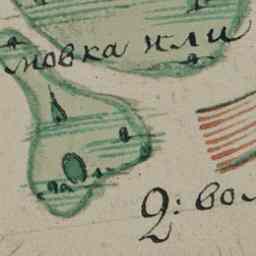 мовка или
2: вол